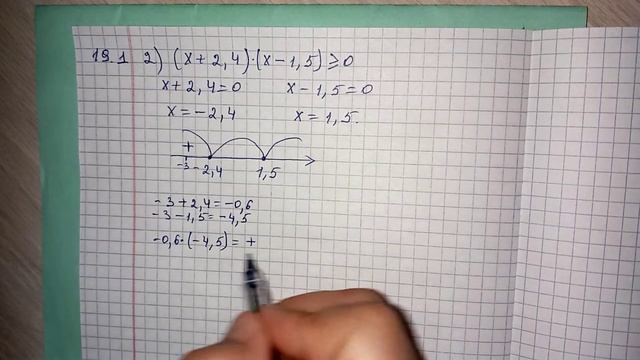 19.1 2) (x+2,4)·(x-1,5)≥0
x+2,4=0 x-1,5=0
x=-2,4 x=1,5.
+
-3 -2,4 1,5
-3+2,4=-0,6
-3-1,5=-4,5
-0,6·(-4,5)=+